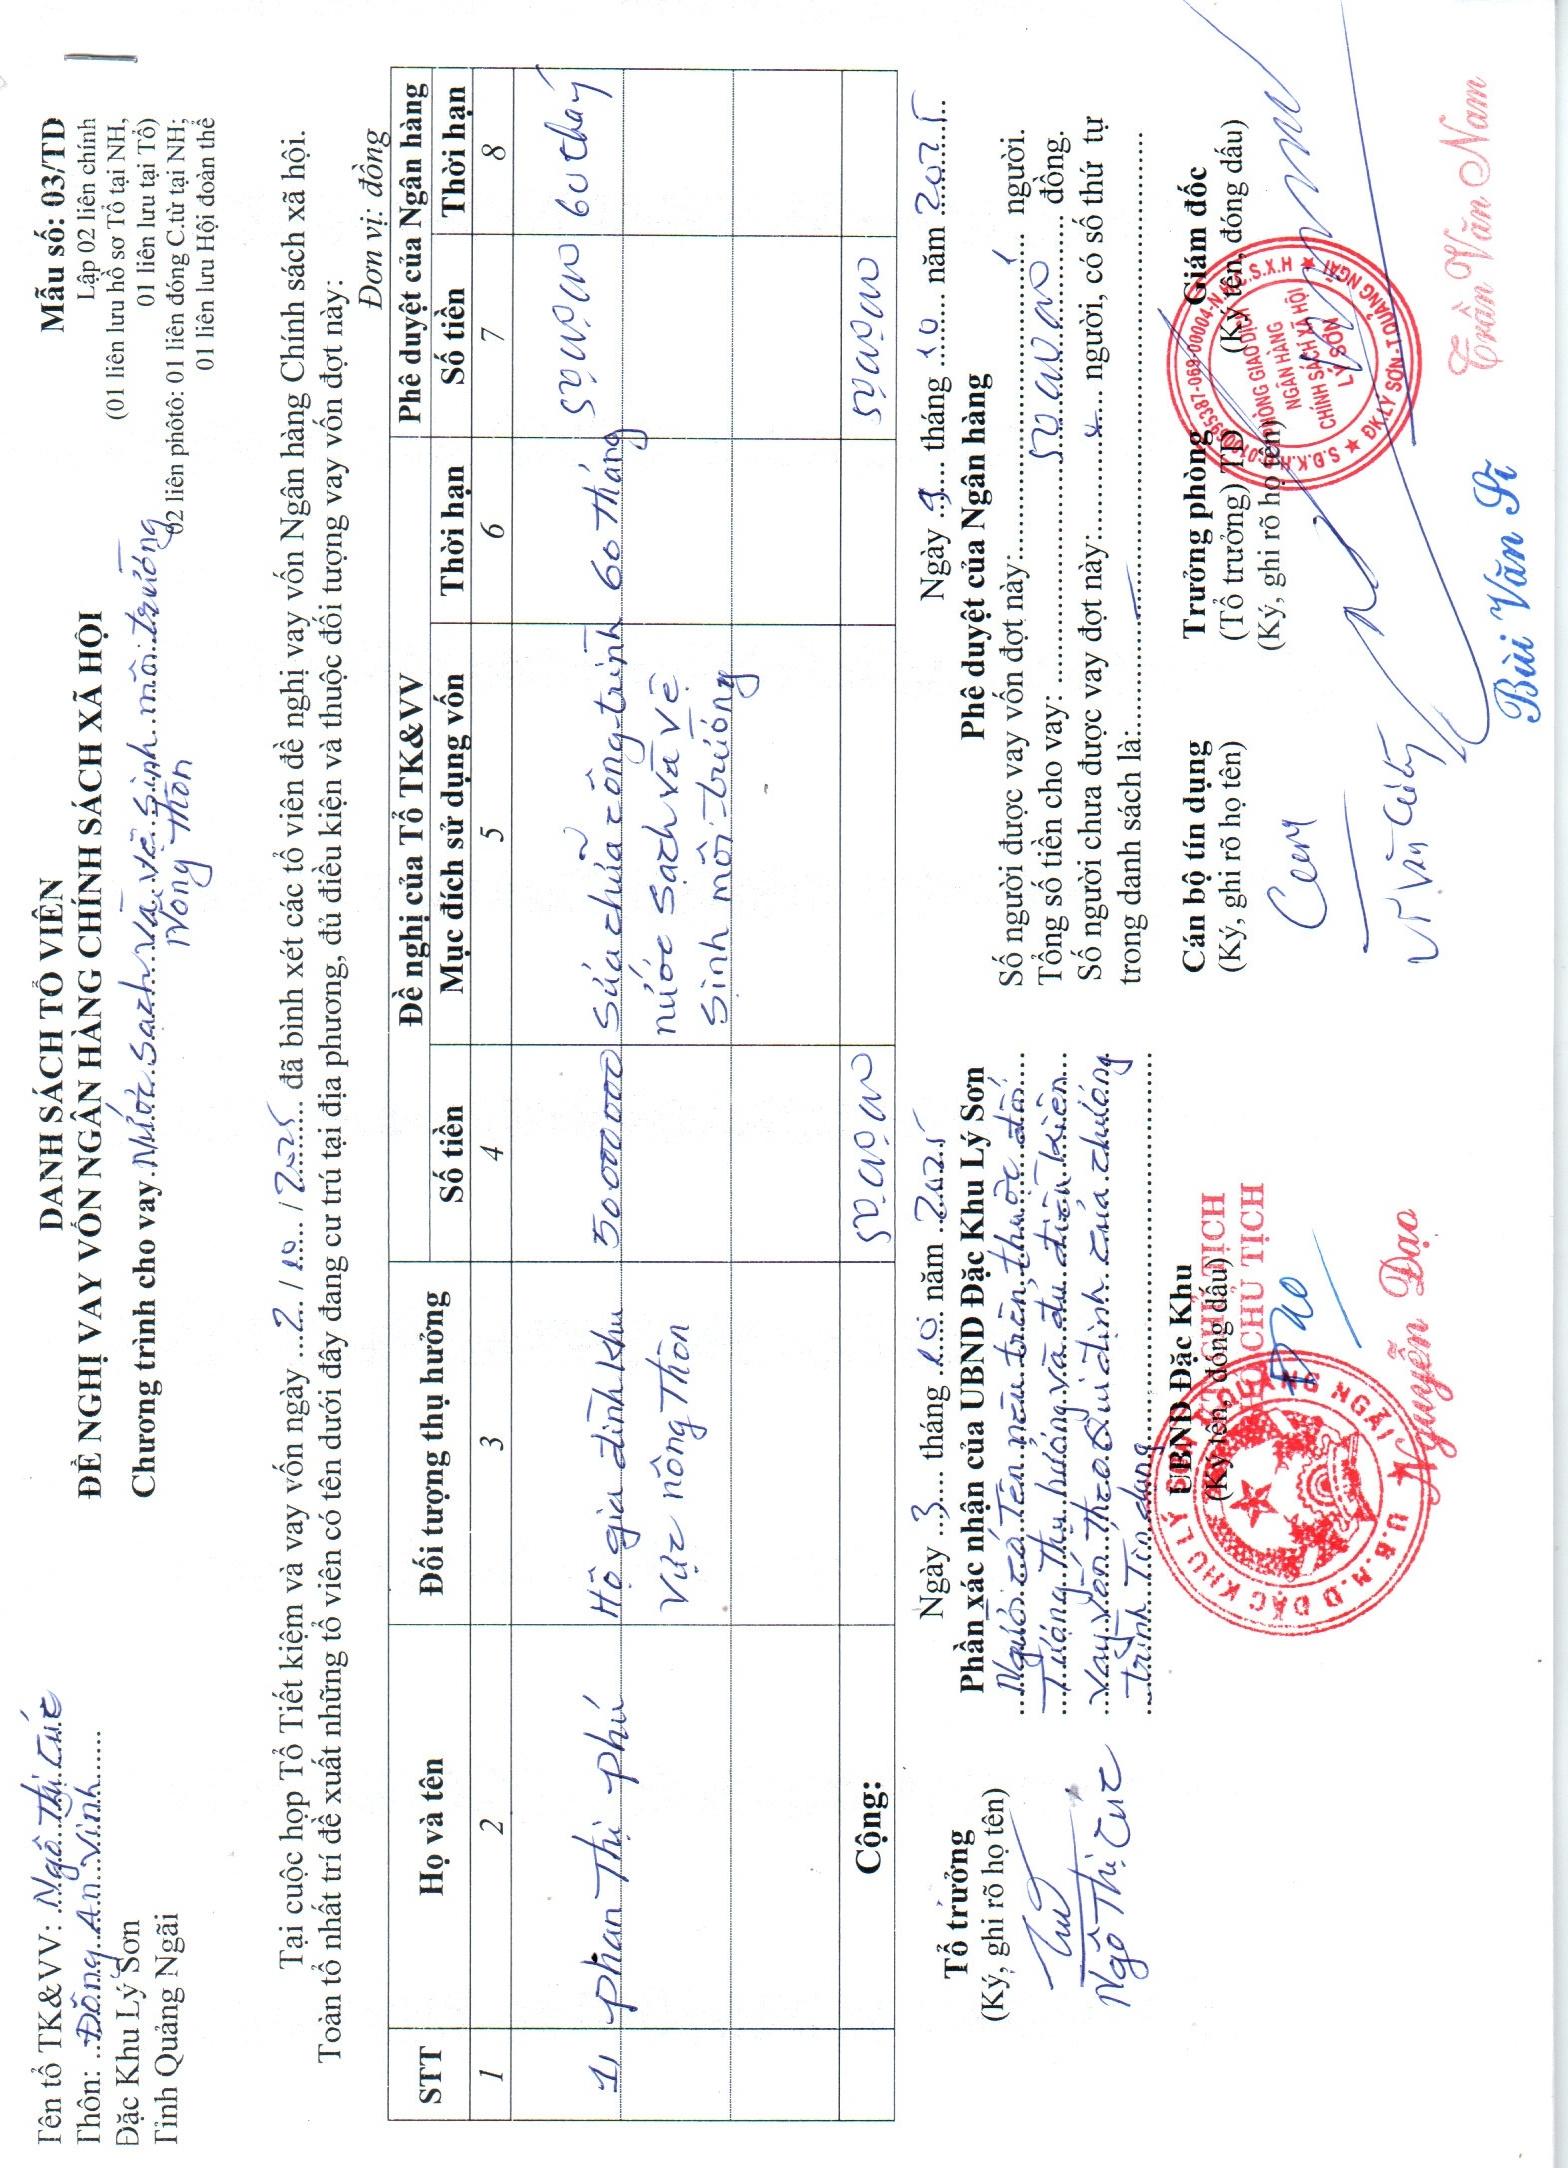 Tên tổ TK&VV: Ngô Thị Cúc
Thôn: Đông An Vĩnh
Đặc Khu Lý Sơn
Tỉnh Quảng Ngãi
Mẫu số: 03/TD
Lập 02 liên chính
(01 liên lưu hồ sơ Tổ tại NH,
01 liên lưu tại Tổ)
02 liên phôtô: 01 liên đóng C.từ tại NH;
01 liên lưu Hội đoàn thể
DANH SÁCH TỔ VIÊN
ĐỀ NGHỊ VAY VỐN NGÂN HÀNG CHÍNH SÁCH XÃ HỘI
Chương trình cho vay Nước sạch và vệ sinh môi trường
Nông thôn
Tại cuộc họp Tổ Tiết kiệm và vay vốn ngày 2 / 10 / 2025 đã bình xét các tổ viên đề nghị vay vốn Ngân hàng Chính sách xã hội.
Toàn tổ nhất trí đề xuất những tổ viên có tên dưới đây đang cư trú tại địa phương, đủ điều kiện và thuộc đối tượng vay vốn đợt này:
Đơn vị: đồng
STT Họ và tên Đối tượng thụ hưởng Đề nghị của Tổ TK&VV Phê duyệt của Ngân hàng
Số tiền Mục đích sử dụng vốn Thời hạn Số tiền Thời hạn
1 2 3 4 5 6 7 8
1, Phan Thị Phú Hộ gia đình khu 50000000 Sửa chữa công trình 60 tháng 60 tháng
vực nông thôn nước sạch và vệ
sinh môi trường
Cộng:
Tổ trưởng
(Ký, ghi rõ họ tên)
Ngô Thị Cúc
Ngày 3 tháng 10 năm 2025
Phần xác nhận của UBND Đặc Khu Lý Sơn
Người có tên nêu trên, thuộc đối
tượng thụ hưởng và đủ điều kiện
vay vốn theo qui định của chương
trình tín dụng
UBND Đặc Khu
(Ký tên, đóng dấu)
CHỦ TỊCH
CHỦ TỊCH
U.B.N.D ĐẶC KHU LÝ SƠN T.QUẢNG NGÃI
Nguyễn Đạo
Ngày 9 tháng 10 năm 2025
Phê duyệt của Ngân hàng
Số người được vay vốn đợt này: 1 người.
Tổng số tiền cho vay: đồng.
Số người chưa được vay đợt này: người, có số thứ tự
trong danh sách là:
Cán bộ tín dụng
(Ký, ghi rõ họ tên)
Trưởng phòng
(Tổ trưởng) TD
(Ký, ghi rõ họ tên)
Bùi Văn Sĩ
Giám đốc
(Ký tên, đóng dấu)
PHÒNG GIAO DỊCH
NGÂN HÀNG
CHÍNH SÁCH XÃ HỘI
LÝ SƠN
ĐK.LÝ SƠN-T.QUẢNG NGÃI
Trần Văn Nam